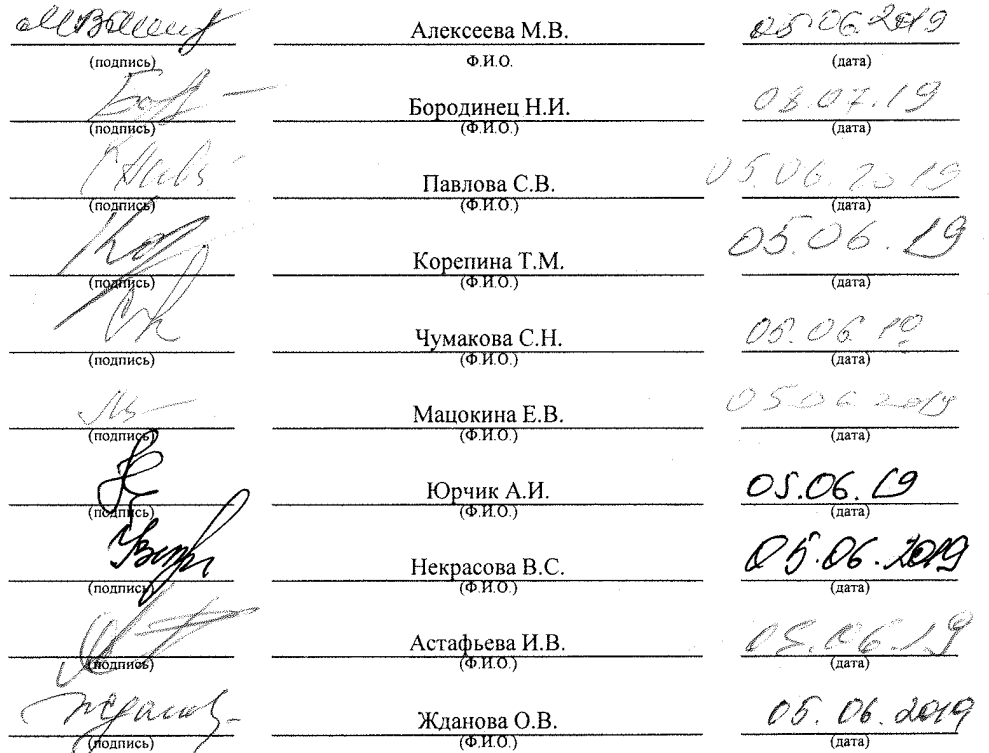 Алексеева М.В. 05.06.2019
(подпись) Ф.И.О. (дата)
Бородинец Н.И. 08.07.19
(подпись) (Ф.И.О.) (дата)
Павлова С.В. 05.06.2019
(подпись) (Ф.И.О.) (дата)
Корепина Т.М. 05.06.19
(подпись) (Ф.И.О.) (дата)
Чумакова С.Н. 05.06.19
(подпись) (Ф.И.О.) (дата)
Мацокина Е.В. 05.06.2019
(подпись) (Ф.И.О.) (дата)
Юрчик А.И. 05.06.19
(подпись) (Ф.И.О.) (дата)
Некрасова В.С. 05.06.2019
(подпись) (Ф.И.О.) (дата)
Астафьева И.В. 05.06.19
(подпись) (Ф.И.О.) (дата)
Жданова О.В. 05.06.2019
(подпись) (Ф.И.О.) (дата)